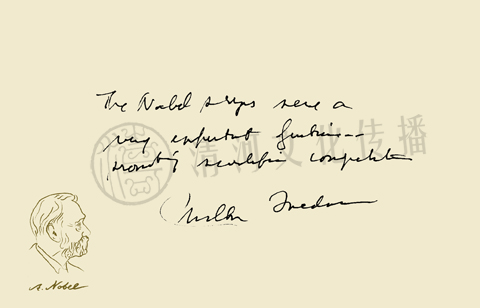 The Nobel prizes serve a
very important function--
promoting scientific competition
Milton Friedman
清河文化传播
A. Nobel